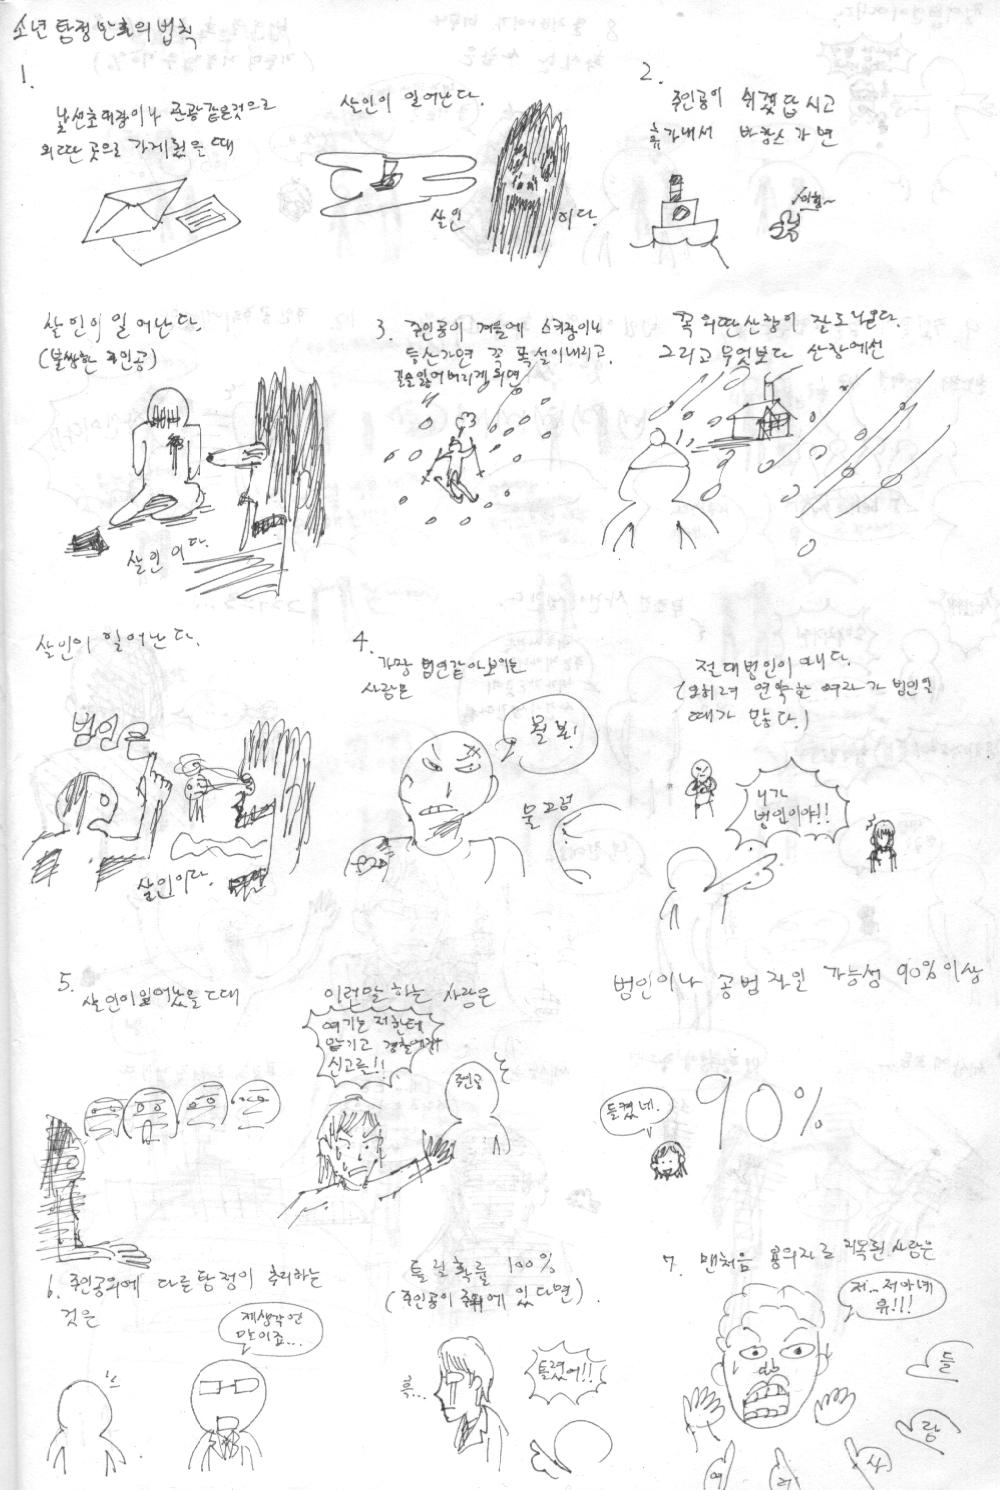 소년 탐정 만화의 법칙
1.
낯선 초대장이나 관광 같은것으로
외딴 곳으로 가게 됬을 때
살인이 일어난다.
살인
이다.
2.
주인공이 쉬겠답시고
휴가내서 바캉스 가면
야호~
살인이 일어난다.
(불쌍한 주인공)
살인이다.
3. 주인공이 겨울에 스키장이나
등산가면 꼭 폭설이내리고
길을잃어버리게 되면
꼭 외딴산장이 잘도나온다.
그리고 무엇보다 산장에선
살인이 일어난다.
범인은
살인이다.
4.
가장 범인같아보이는
사람은
뭘봐!
절대범인이 아니다.
(오히려 연약한 여자가 범인일
때가 많다.)
니가
범인이야!!
5.
살인이일어났을때
이런말 하는 사람은
여기는 저한테
맡기고 경찰에게
신고를!!
주인공
범인이나 공범자일 가능성 90%이상
들켰네.
90%
6. 주인공외에 다른탐정이 추리하는
것은
제생각엔
말이죠...
틀릴확률 100%
(주인공이 주위에 있다면).
흑...
틀렸어!!
7. 맨처음 용의자로 지목된 사람은
저..저아녜
유!!!
여
러
사
람
들